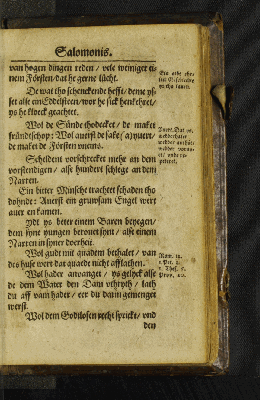 Salomonis.
van hogen dingen reden / vele weiniger ei-
nem Försten / dat he gerne lücht.
De wat tho schenckende hefft / deme ys-
set alse ein Eddelsteen / wor he sick henkehret /
ys he kloeck geachtet.
Wol de Sünde thodecket / de maket
fründtschop: Wol auerst de sake
de maket de Försten uneins.
Scheldent vorschrecket mehr an dem
vorstendigen / alse hundert schlege an dem
Narren.
Ein bitter Minsche trachtet schaden tho
dohnde: Auerst ein gruwsam Engel wert
auer en kamen.
ydt ys beter einem Baren beyegen /
dem syne yungen berouet synt / alse einem
Narren in syner dorheit.
Wol gudt mit quadem bethalet / van
des huse wert dat quaede nicht afflathen.
Wol hader anvanget / ys gelyck alse
de dem Water den Dam uthryth / lath
du aff vam hader / eer du darin gemenget
werst.
Wol dem Godtlosen recht sprickt / vnd
den
Rom. 12.
1. Pet. 3.
1. Thes. 5.
Prov. 20.